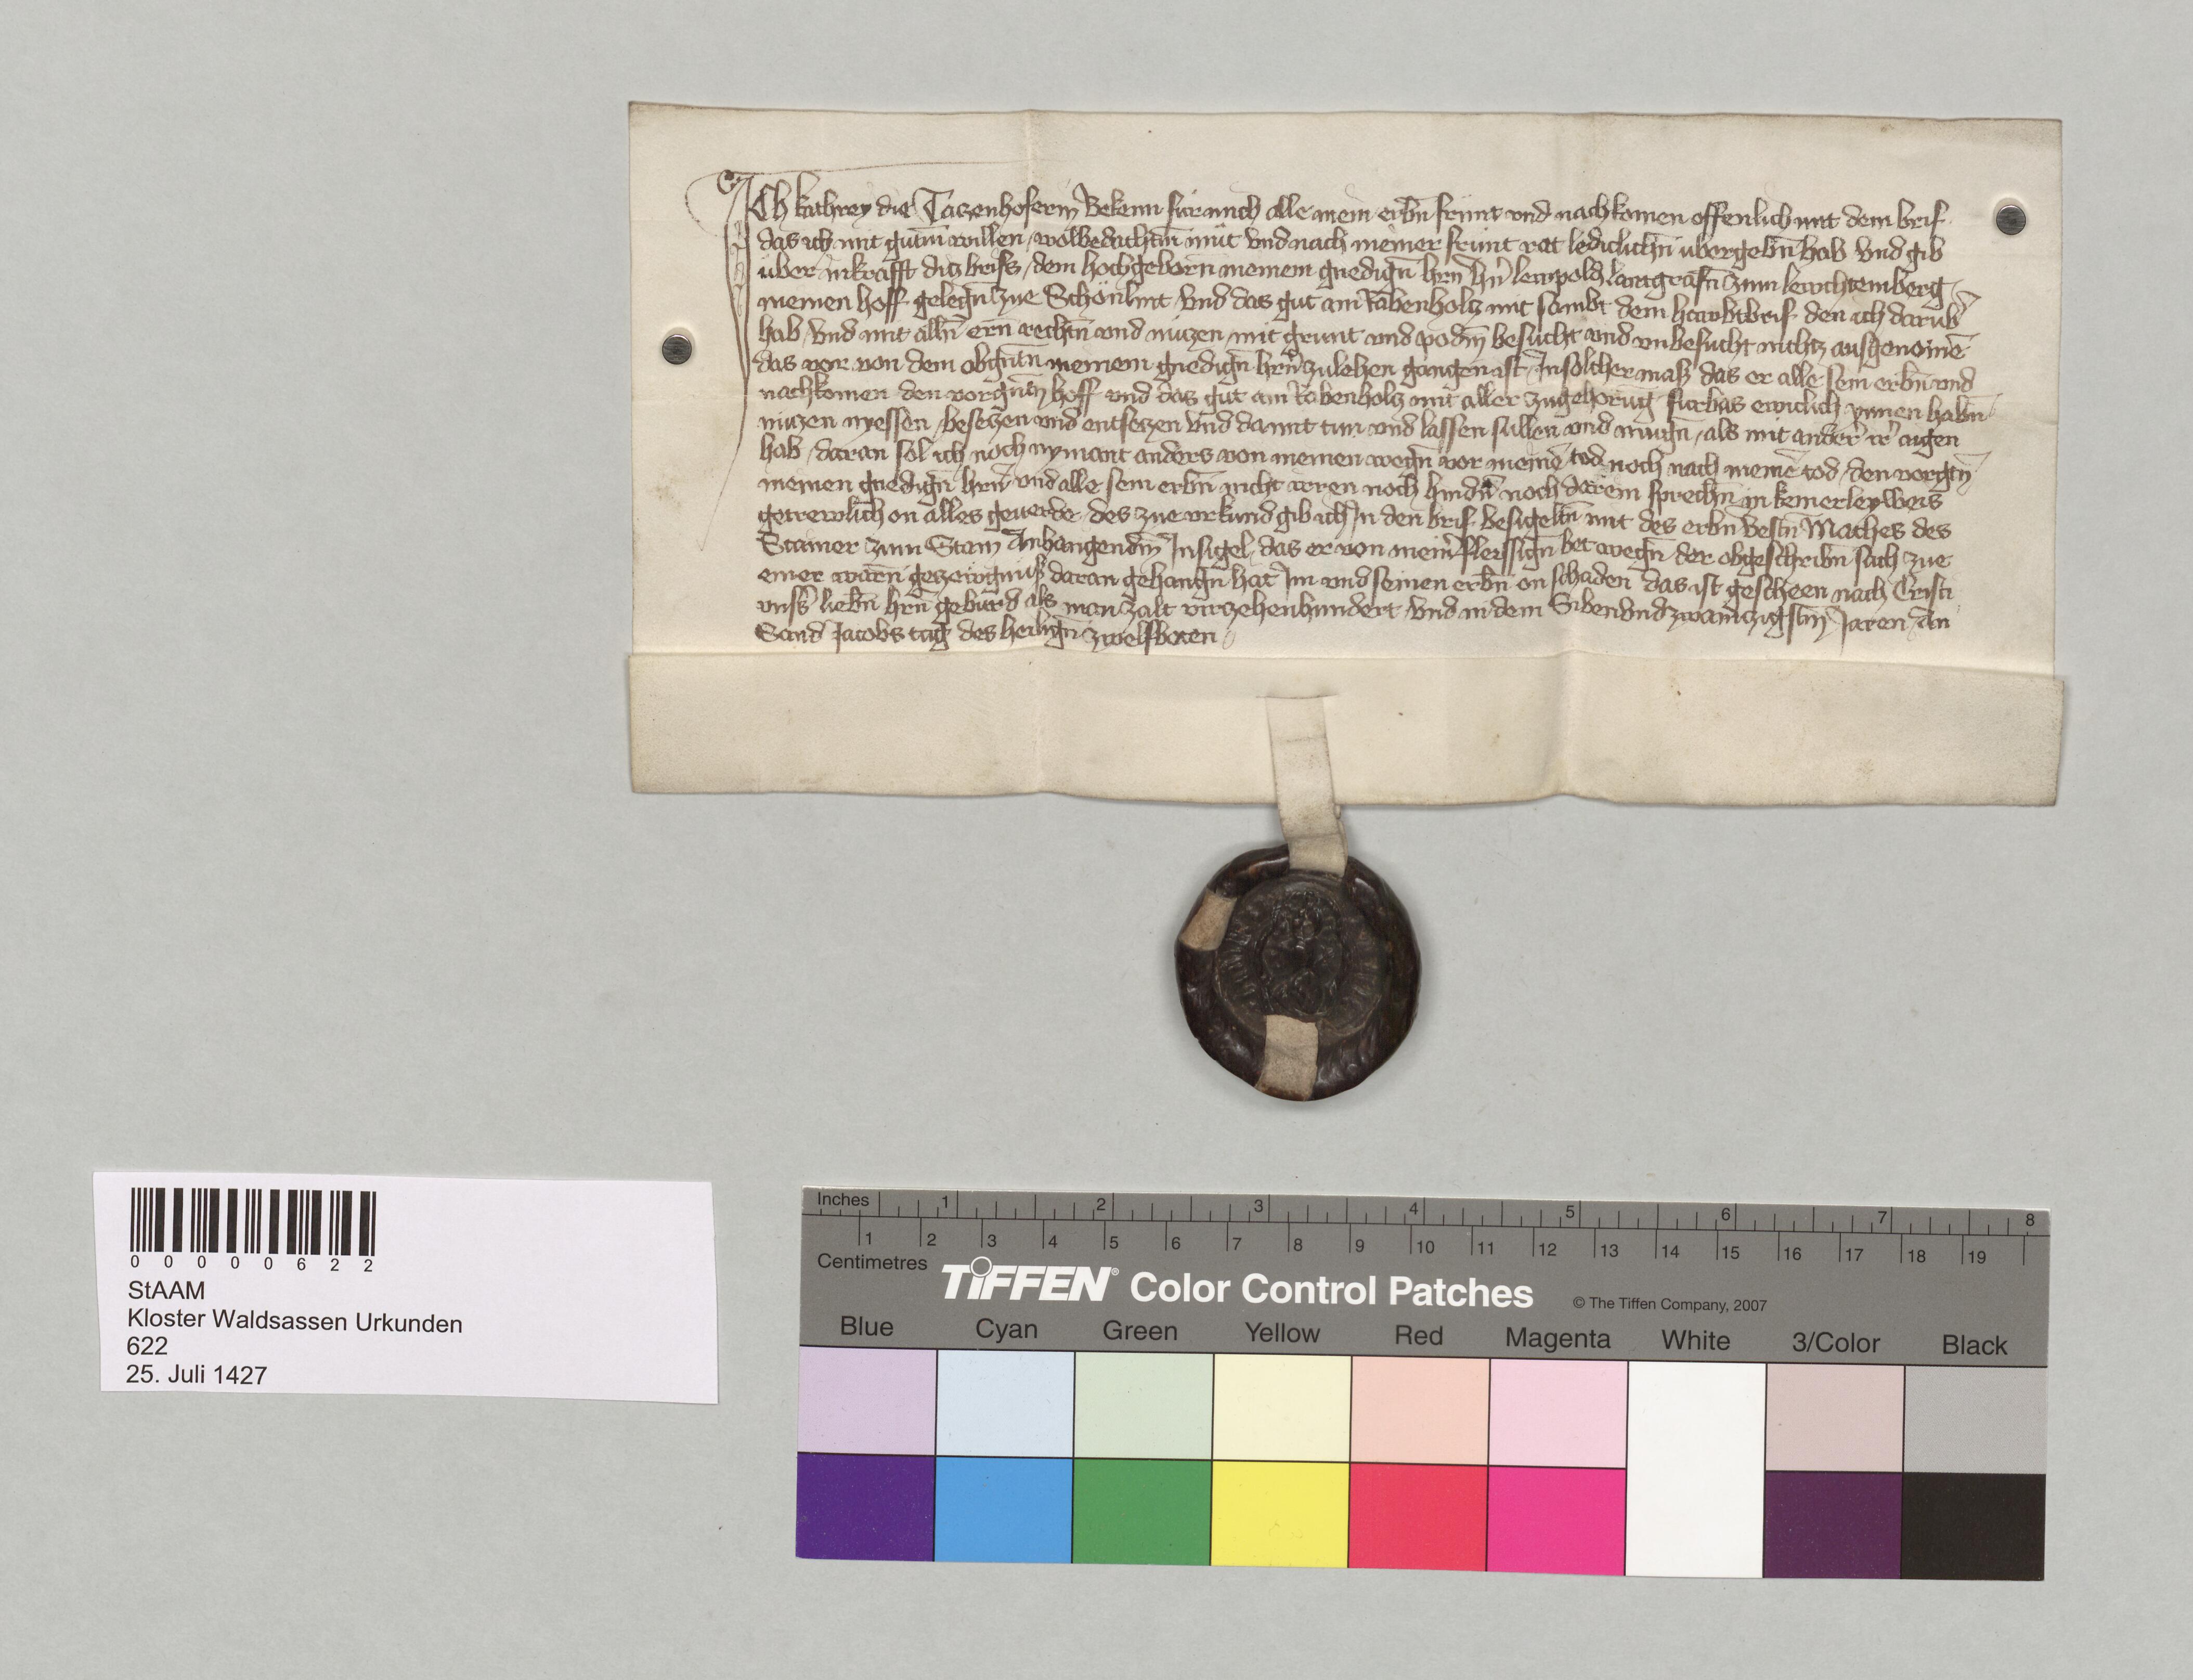 Ich kathrey die Tatzenhoferin Bekenn fur mich alle mein erbn̄ frunt vnd nachkomen offenlich mit dem brif
das ich mit gutm̄ willen wolbedachtm̄ mut vnd nach meiner frunt rat lediclichn̄ ubergebn̄ hab vnd gib
uber inkrafft ditz brifs dem hochgeborn̄ meinem gnedign̄ hrn̄ hn̄ lewpold lantgrafn̄ zum lewchtemberg
meinen hoff gelegn̄ zue Schönlint vnd das gut am Rabenholtz mit sambt dem hawbtbrif den ich darub̄
hab vnd mit alln̄ ern̄ rechtn̄ vnd nutzen mit grunt vnd podm̄ besucht vnd vnbesucht nichtz ausgenomē
das vor von dem obgn̄tn̄ meinem gnedign̄ hrn̄ zulehen gangen ist Insolcher mass das er alle sein erbn̄ vnd
nachkomen den vorgn̄tn̄ hoff vnd das gut am Rabenholtz mit aller zugehorūg furbas ewiclich ynnen habn̄
nutzen nyessen besetzen vnd entsetzen vnd damit tun vnd lassen sullen vnd mugn̄ als mit ander̄ ir̄ aigen
hab daran sol ich noch nymant anders von meinen wegn̄ vor meinē tod noch nach meinē tod den vorgtn̄
meinen gnedign̄ hrn̄ vnd alle sein erbn̄ nicht irren noch hindn̄ noch darein sprechn̄ in keinerley weis
getrewlich on alles geuerde des zue vrkund gib ich In den brif besigeltn̄ mit des erbn̄ vestn̄ Mathes des
Stainer zum Stain Anhangendm̄ Insigel das er von mein̄ fleissign̄ bet wegn̄ der obgeschribn̄ sach zue
einer warn̄ gezewgnuss daran gehangn̄ hat Im vnd seinen erbn̄ on schaden das ist gescheen nach Cristi
vnss̄ liebn̄ hrn̄ geburd als man zalt virzehenhundert vnd in dem Sibenvndzwaintzigstn̄ Jaren An
Sand Jacobs tag des heilign̄ zwelfboten
0 0 0 0 0 6 2 2
StAAM
Kloster Waldsassen Urkunden
622
25. Juli 1427
Inches 1 2 3 4 5 6 7 8
1 2 3 4 5 6 7 8 9 10 11 12 13 14 15 16 17 18 19
Centimetres
TIFFEN® Color Control Patches © The Tiffen Company, 2007
Blue Cyan Green Yellow Red Magenta White 3/Color Black